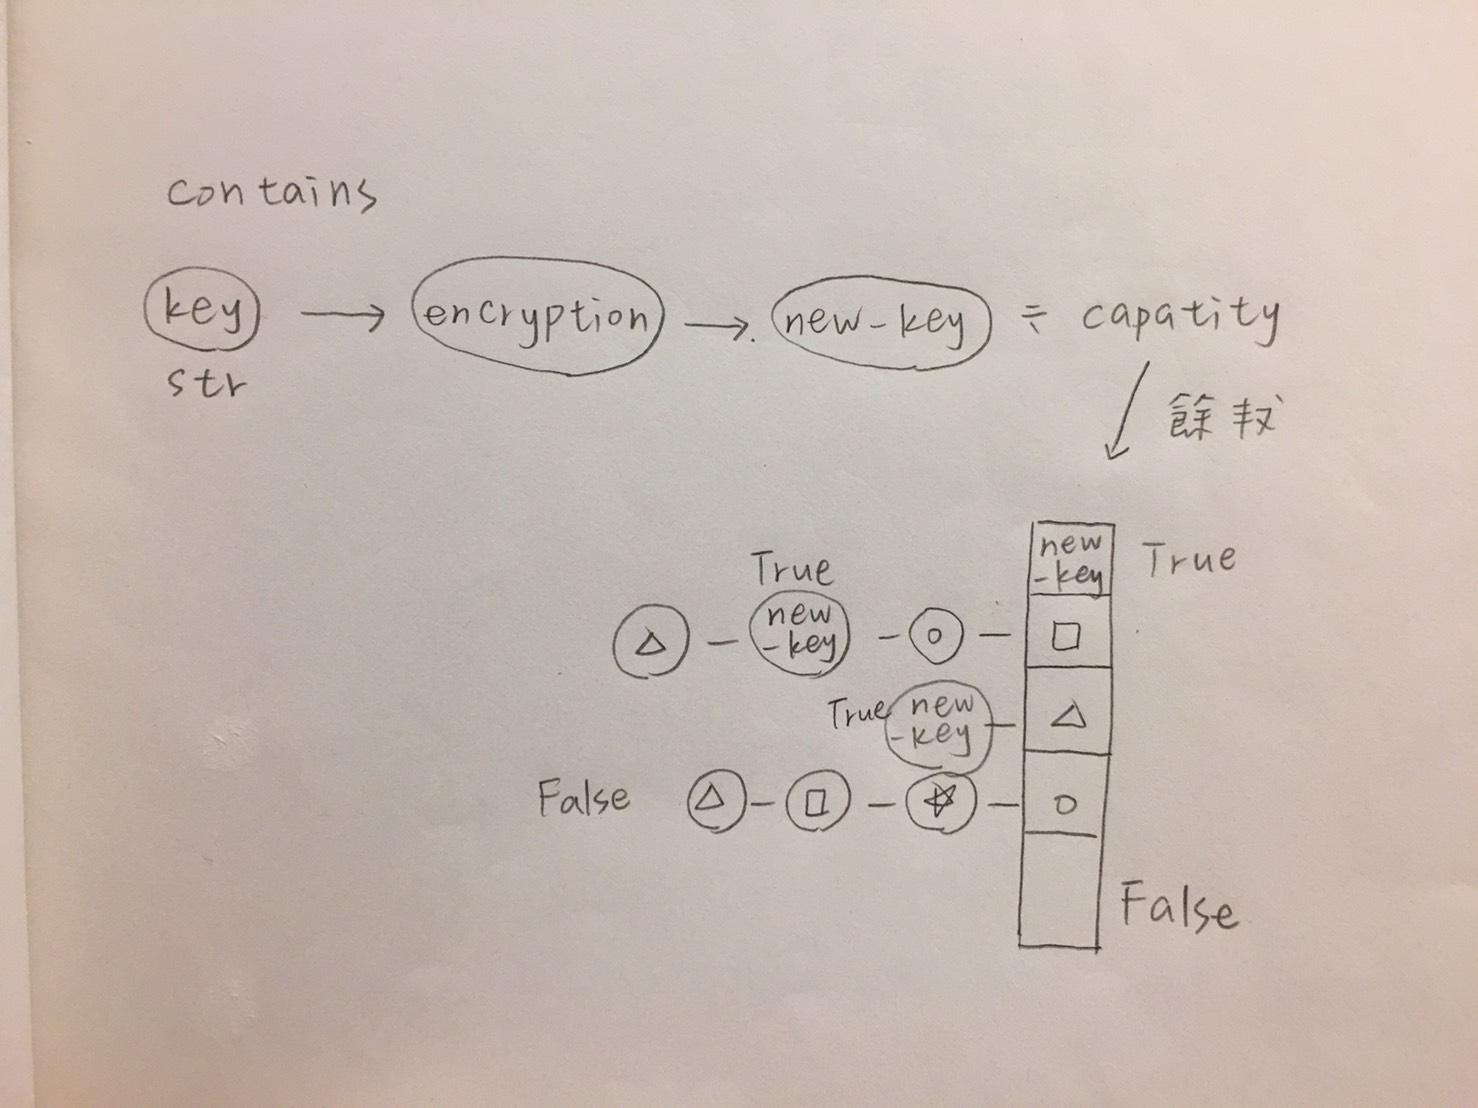 contains
key → encryption → new-key ÷ capatity
str
餘
new
-key
True
True
new
-key
True
new
-key
False
False